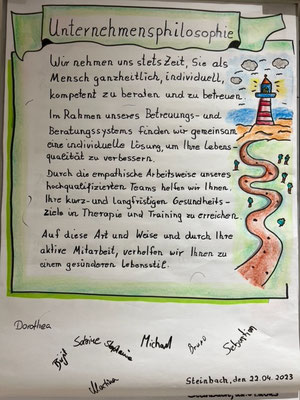 Unternehmensphilosophie
Wir nehmen uns stets Zeit, Sie als
Mensch ganzheitlich, individuell,
kompetent zu beraten und zu betreuen.
Im Rahmen unseres Betreuungs- und
Beratungssystems finden wir gemeinsam
eine individuelle Lösung, um Ihre Lebens-
qualität zu verbessern.
Durch die empathische Arbeitsweise unseres
hochqualifizierten Teams helfen wir Ihnen.
Ihre kurz- und langfristigen Gesundheits-
Ziele in Therapie und Training zu erreichen.
Auf diese Art und Weise und durch Ihre
aktive Mitarbeit, verhelfen wir Ihnen zu
einem gesünderen Lebensstil.
Dorothea
Birgit Sabine Stephanie Michael Bruno Sebastian
Martina
Steinbach, den 22.04.2023